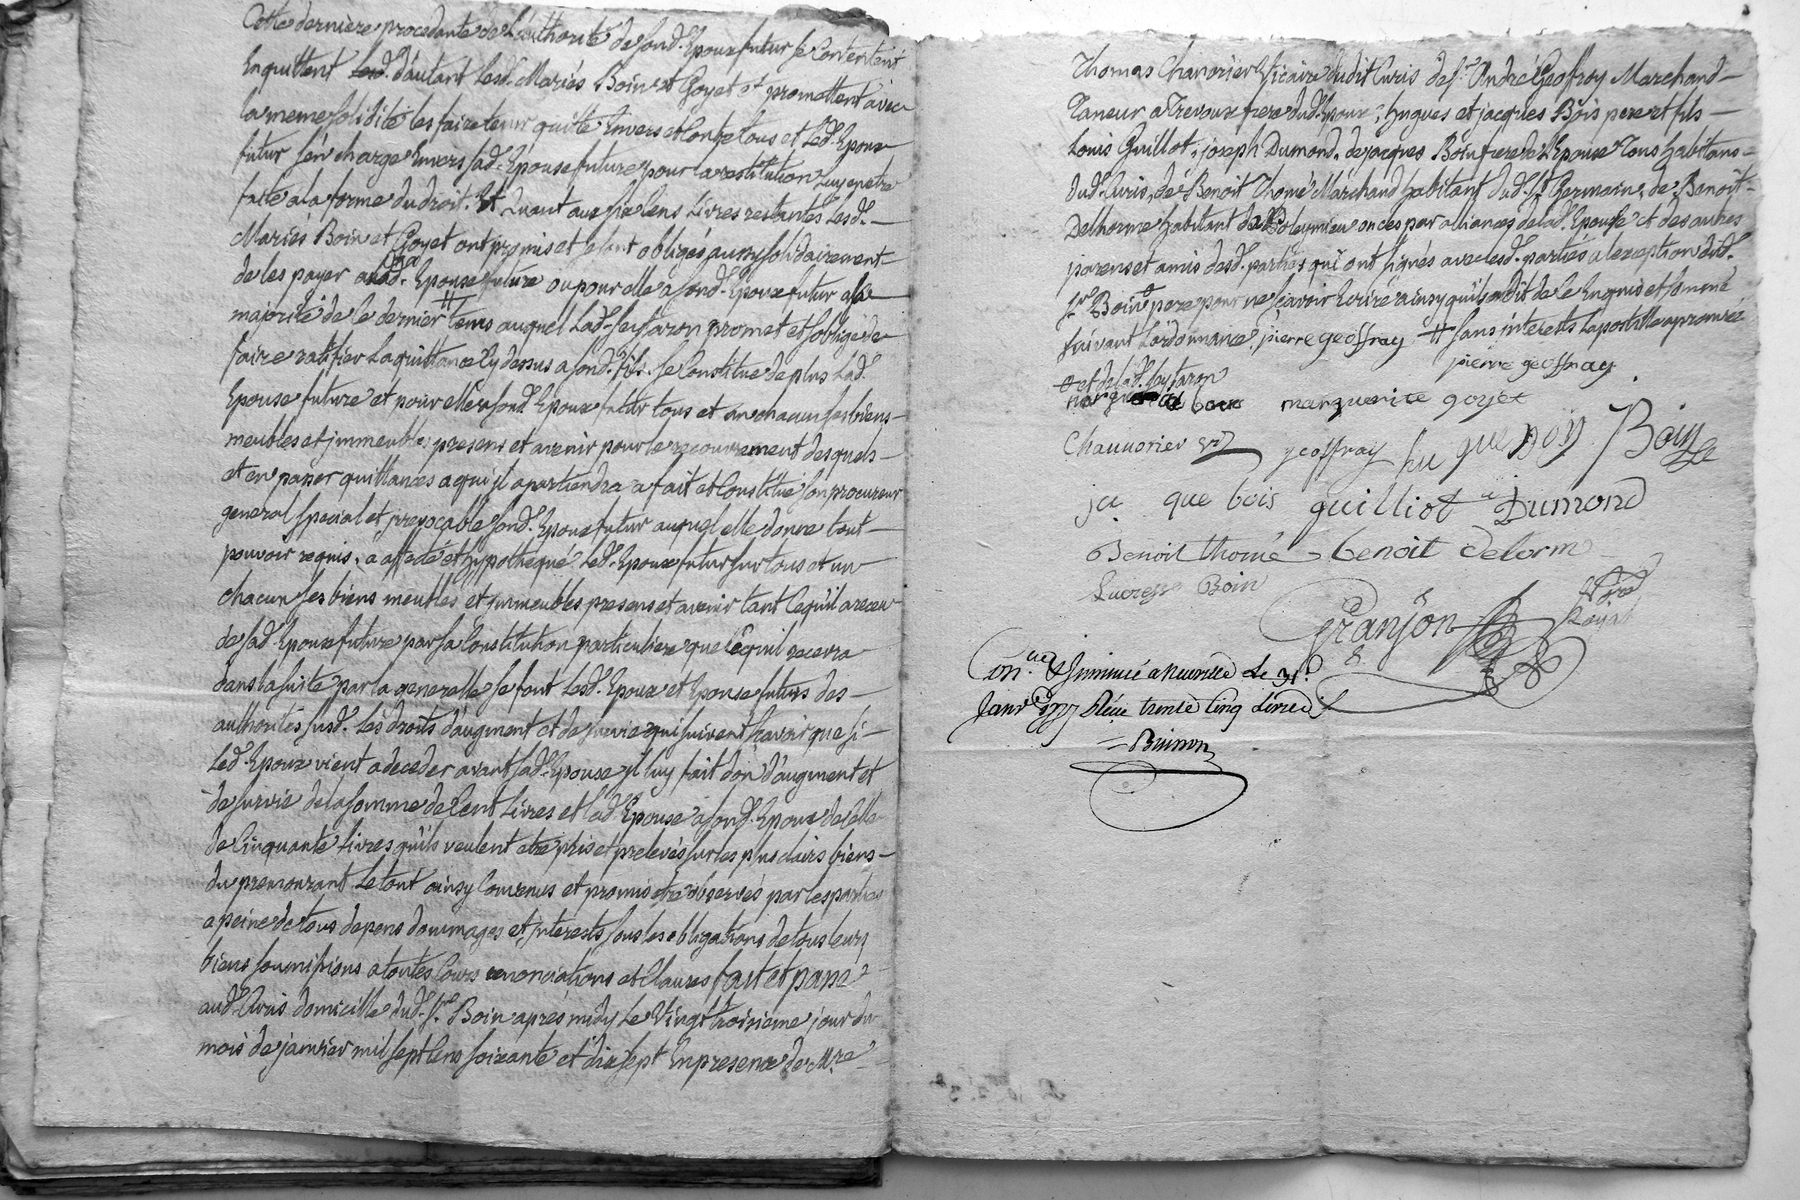 Cette derniere procedante de l'authorité de sond. Epoux futur se Contentent
Enquittent Lesd. d'autant Lesd. Mariés Boin et Goyet et promettent avec
la meme solidité les faire tenir quitte Envers et Contre tous et Led. Epoux
futur s'en charge Envers sad. Epouse future pour la restitution Luy en etre
faite a la forme du droit. Et Quant aux six Cens Livres restantes Lesd.
Mariés Boin et Goyet ont promis et se sont obligés aussy solidairement
de les payer a lad. Epouse future ou pour elle a sond. Epoux futur a la
majorité de ce dernier # tems auquel Lad. Seytaron promet et s'oblige de
faire ratifier La quittance Cy dessus a sond. fils. se Constitue de plus Lad.
Epouse future et pour elle a sond. Epoux futur tous et un chacun ses biens
meubles et immeubles presens et avenir pour le recouvrement desquels
et en passer quittances a qui il apartiendra a fait et Constitué son procureur
general special et irrevocable sond. Epoux futur auquel elle donne tout
pouvoir requis, a affecté et hypothequé Led. Epoux futur sur tous et un
chacun ses biens meubles et immeubles presens et avenir tant Ce qu'il a receu
de sad. Epouse future par sa Constitution particuliere que Ce qu'il recevra
dans la suite par la generelle se font Lesd. Epoux et Epouse futurs des
authorités susd. Les droits d'augment et de survie qui suivent scavoir que si
Led. Epoux vient a deceder avant sad. Epouse il luy fait don d'augment et
de survie de la somme de Cent Livres et Lad. Epouse a sond. Epoux de Celle
de Cinquante Livres qu'ils veulent etre pris et prelevés sur les plus clairs biens
du premourant. Le tout ainsy Convenus et promis etre observés par les parties
a peine de tous depens dommages et interests sous les obligations de tous leurs
biens soumissions a toutes Cours renonciations et Clauses fait et passé
aud. Curis domicille dud. Sr. Boin après midy Le Vingt troisieme jour du
mois de janvier mil sept Cens soixante et dix sept En presence de Mre.
Thomas Chavorier Vicaire dudit Curis de Sr. André Geoffroy Marchand
Taneur a Trevoux frere dud. Epoux, hugues et jacques Bois pere et fils
Louis Guillot, joseph Dumond, de jacques Boin frere de l'Epouse Tous habitans
dud. Curis, de Benoit Thomé Marchand habitant dud. St. Germain, de Benoit
Delhorme habitant de Poleymieu oncles par alliances de lad. Epouse et des autres
parens et amis desd. parties qui ont signés avec lesd. parties a l'exception dud.
Sr. Boin pere pour ne sçavoir Ecrire ainsy qu'il a dit de ce Enquis et sommé
suivant L'ordonnance. pierre geoffray # sans interests L'apostille aprouvée
pierre geoffray
et de lad. Seytaron
marguerite goyet
Chauvorier geoffray hu gue boy Boin
ja que bois guilliot Dumond
Benoit thomé benoit delorm
Lucresse Boin
Granjon
Royal
Con. Et Insinué a neuville Le 31.
Janv. 1777 Reçu trente Cinq Livres
Buisson